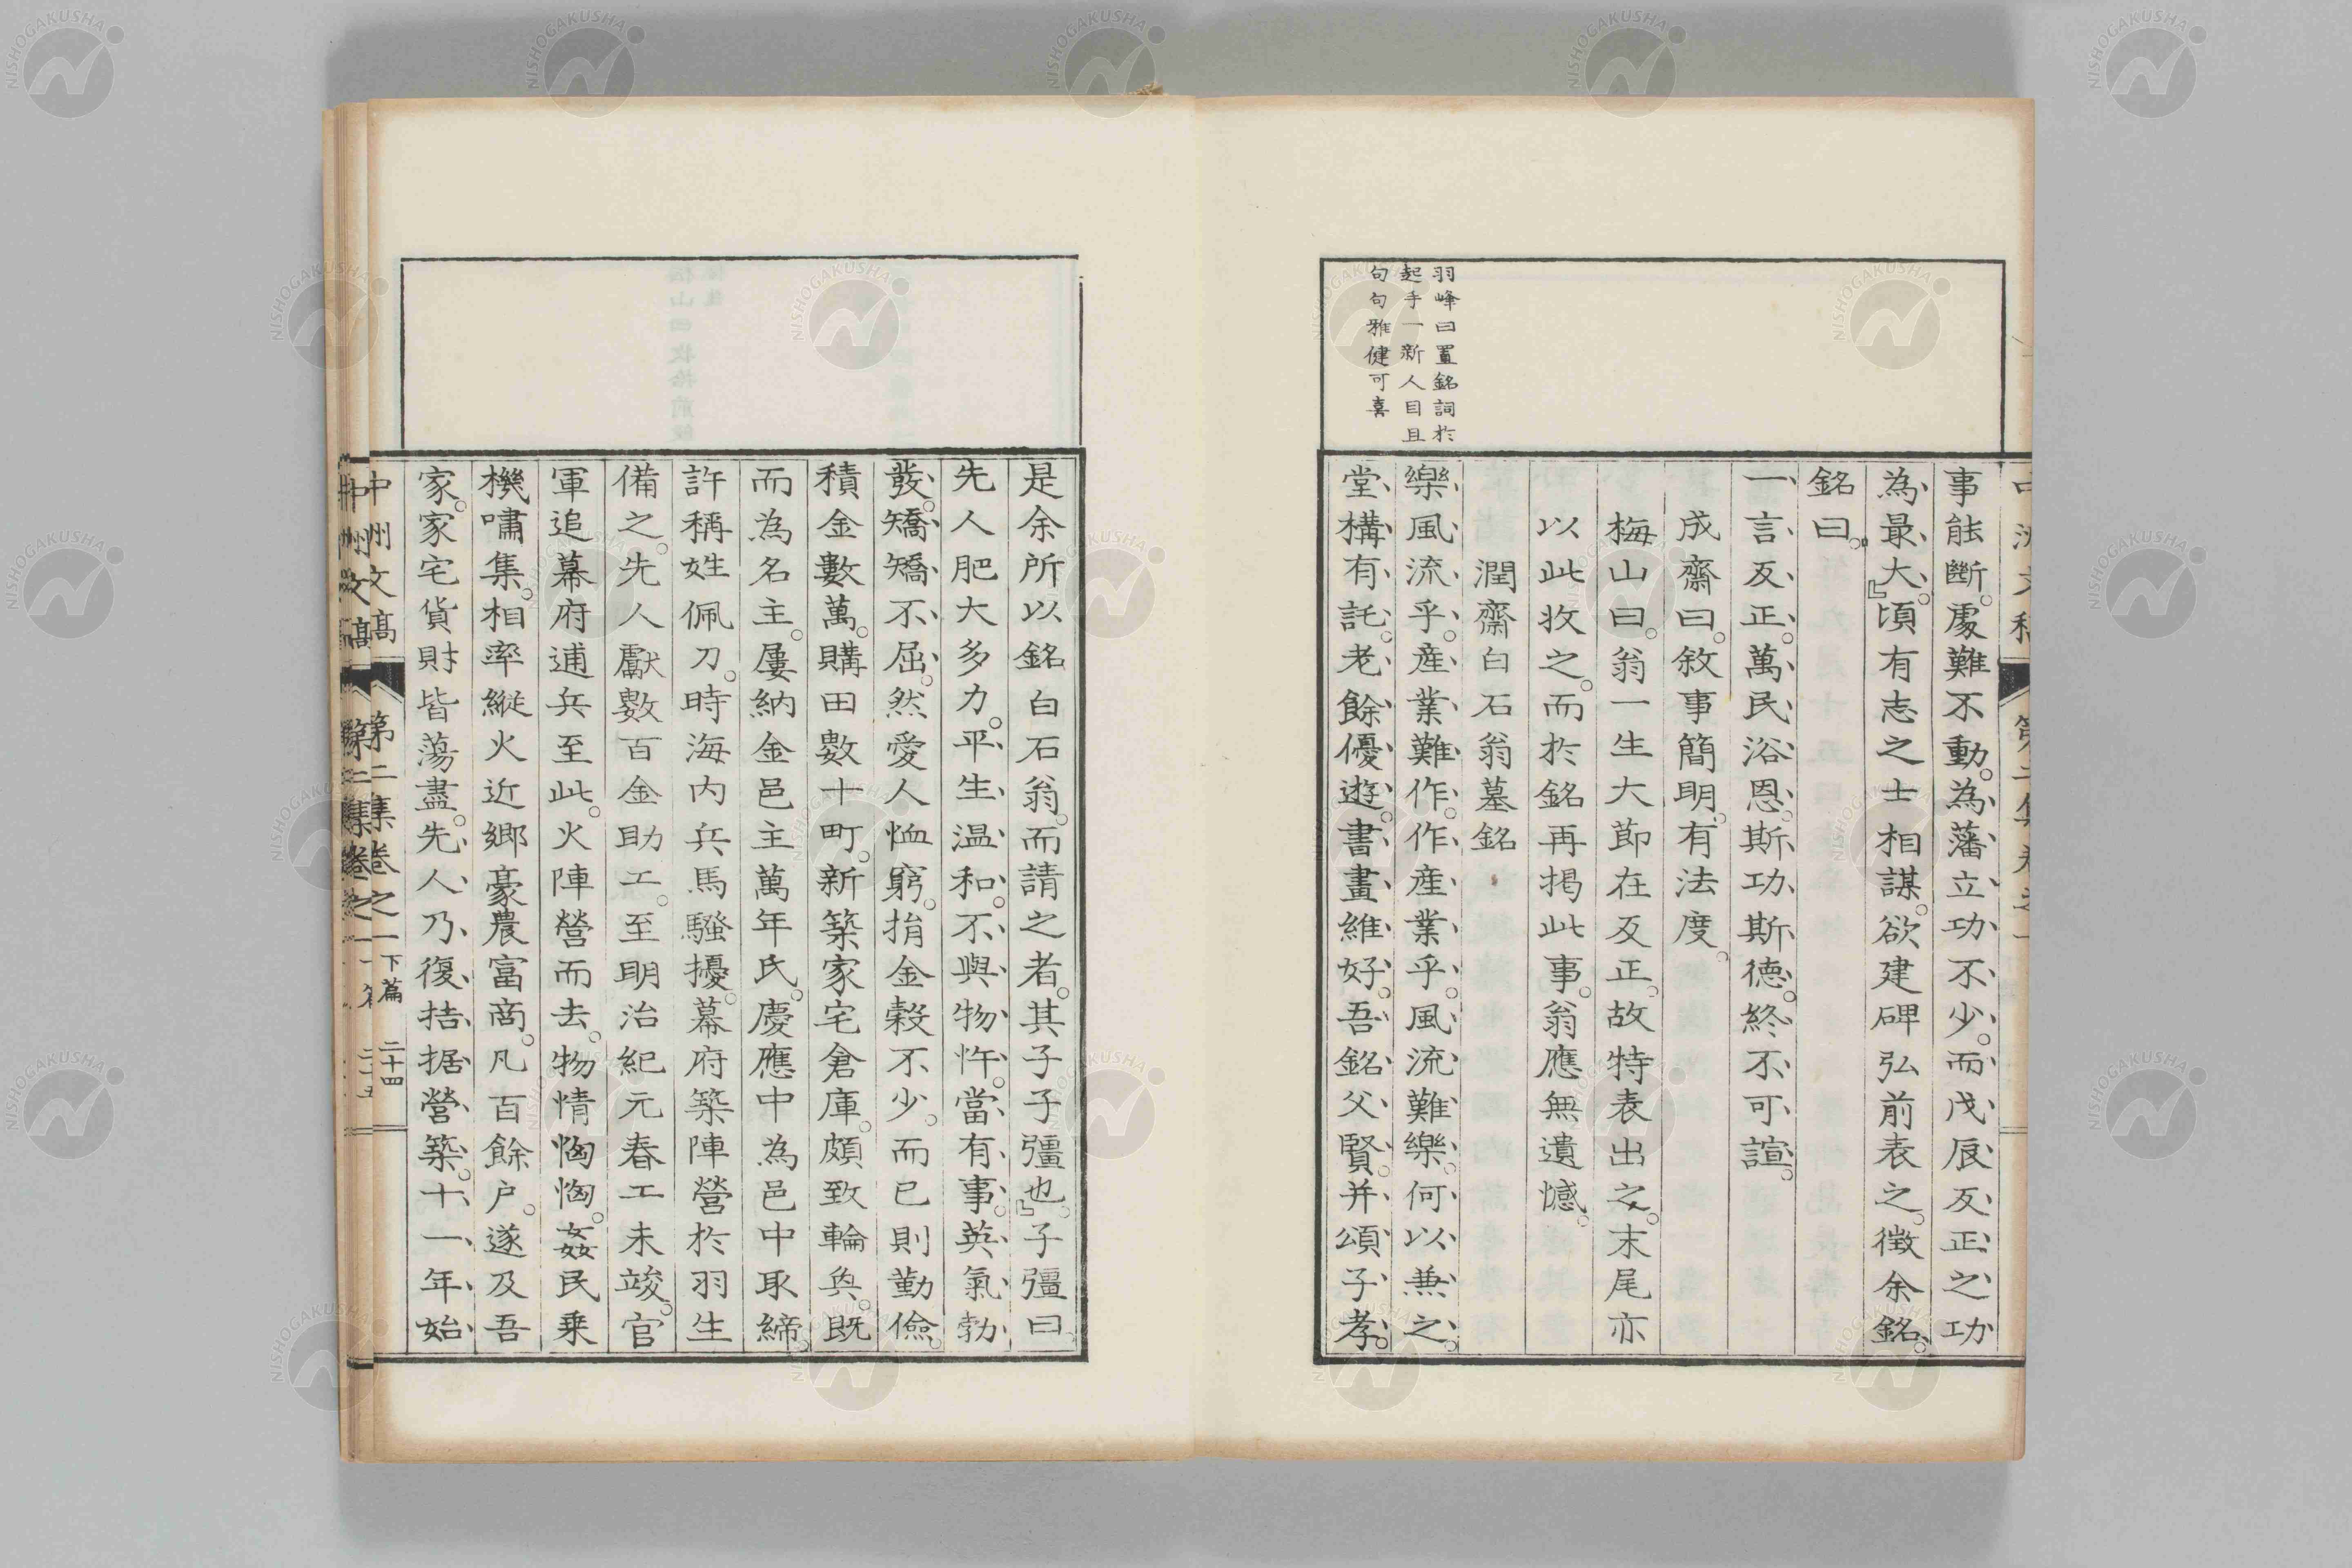 事能斷。處難不動。為藩立功不少。而戊辰反正之功
為最大。』頃有志之士相謀。欲建碑弘前表之。徵余銘。
銘曰。
一言反正。萬民浴恩。斯功斯德。終不可諠。
成齋曰。敘事簡明。有法度。
梅山曰。翁一生大節在反正。故特表出之。末尾亦
以此收之。而於銘再揭此事。翁應無遺憾。
潤齋白石翁墓銘
樂風流乎。產業難作。作產業乎。風流難樂。何以兼之。
堂構有託。老餘優遊。書畫維好。吾銘父賢。并頌子孝。
羽峰曰置銘詞於
起手一新人目且
句句雅健可喜
是余所以銘白石翁。而請之者。其子子彊也。』子彊曰。
先人肥大多力。平生溫和。不與物忤。當有事。英氣勃
發。矯矯不屈。然愛人恤窮。捐金穀不少。而已則勤儉。
積金數萬。購田數十町。新築家宅倉庫。頗致輪奐。既
而為名主。屢納金邑主萬年氏。慶應中為邑中取締。
許稱姓佩刀。時海內兵馬騷擾。幕府築陣營於羽生
備之。先人獻數百金助工。至明治紀元春工未竣。官
軍追幕府逋兵至此。火陣營而去。物情恟恟。姦民乘
機嘯集。相率縱火近鄉豪農富商。凡百餘户。遂及吾
家。家宅貨財皆蕩盡。先人乃復拮据營築。十一年始
中州文高 第二集卷之一 下篇 二十四